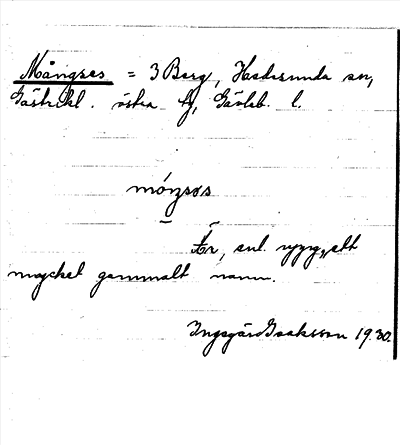 Mångses = 3 Berg, Hedesunda sn,
Gästrikl. östra tg, Gävleb. l.
mó̱ŋsəs
Är, enl. uppg., ett
mycket gammalt namn.
Ingegärd Isaksson 1930.